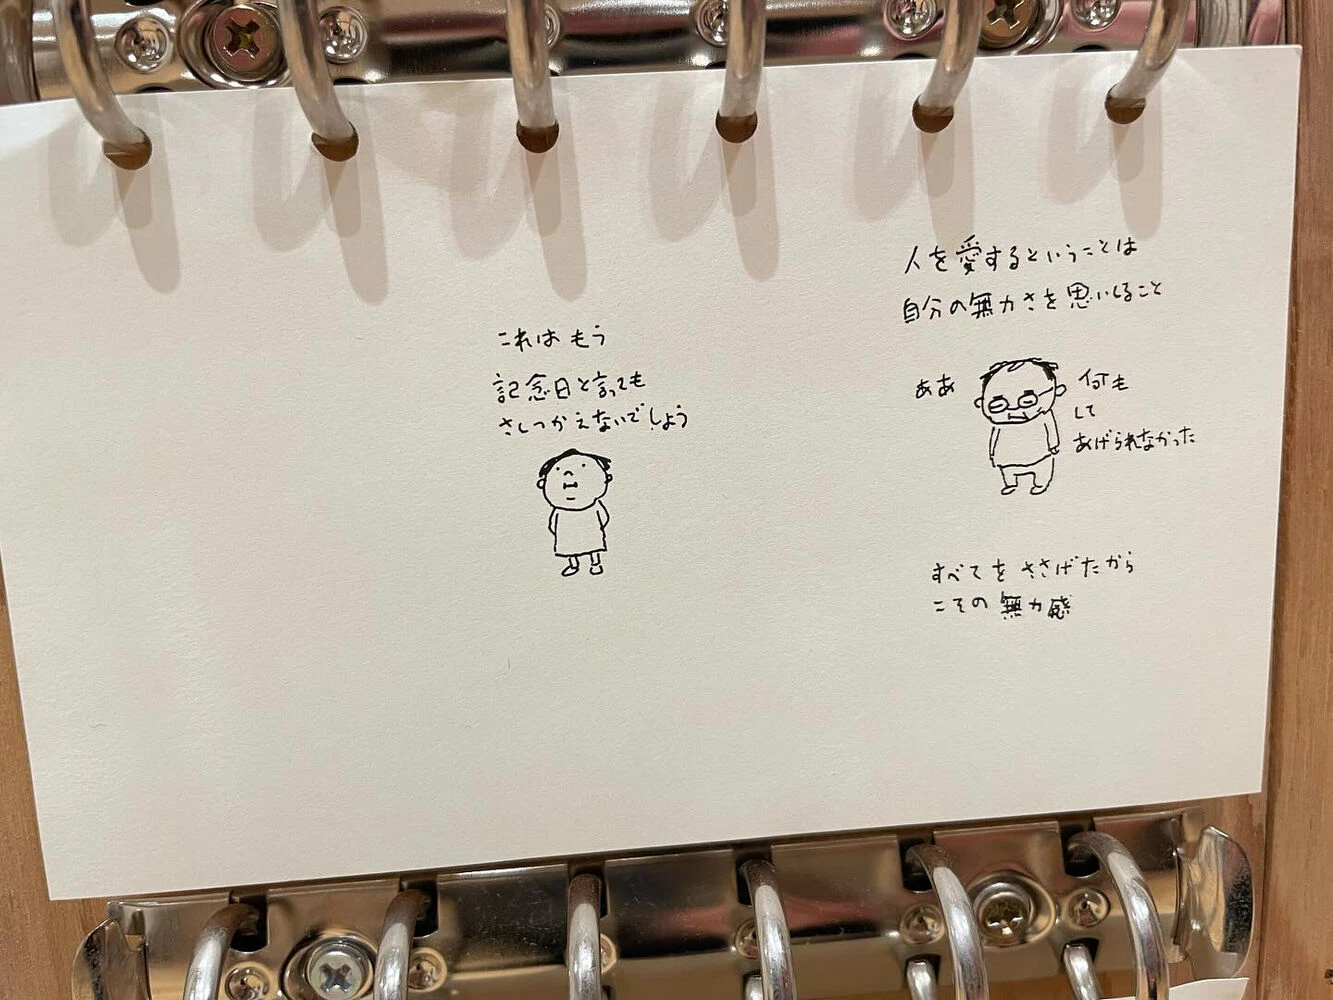 人を愛するということは
自分の無力さを思いしること
ああ
何も
して
あげられなかった
すべてを ささげたから
こその 無力感
これは もう
記念日と言っても
さしつかえないでしょう